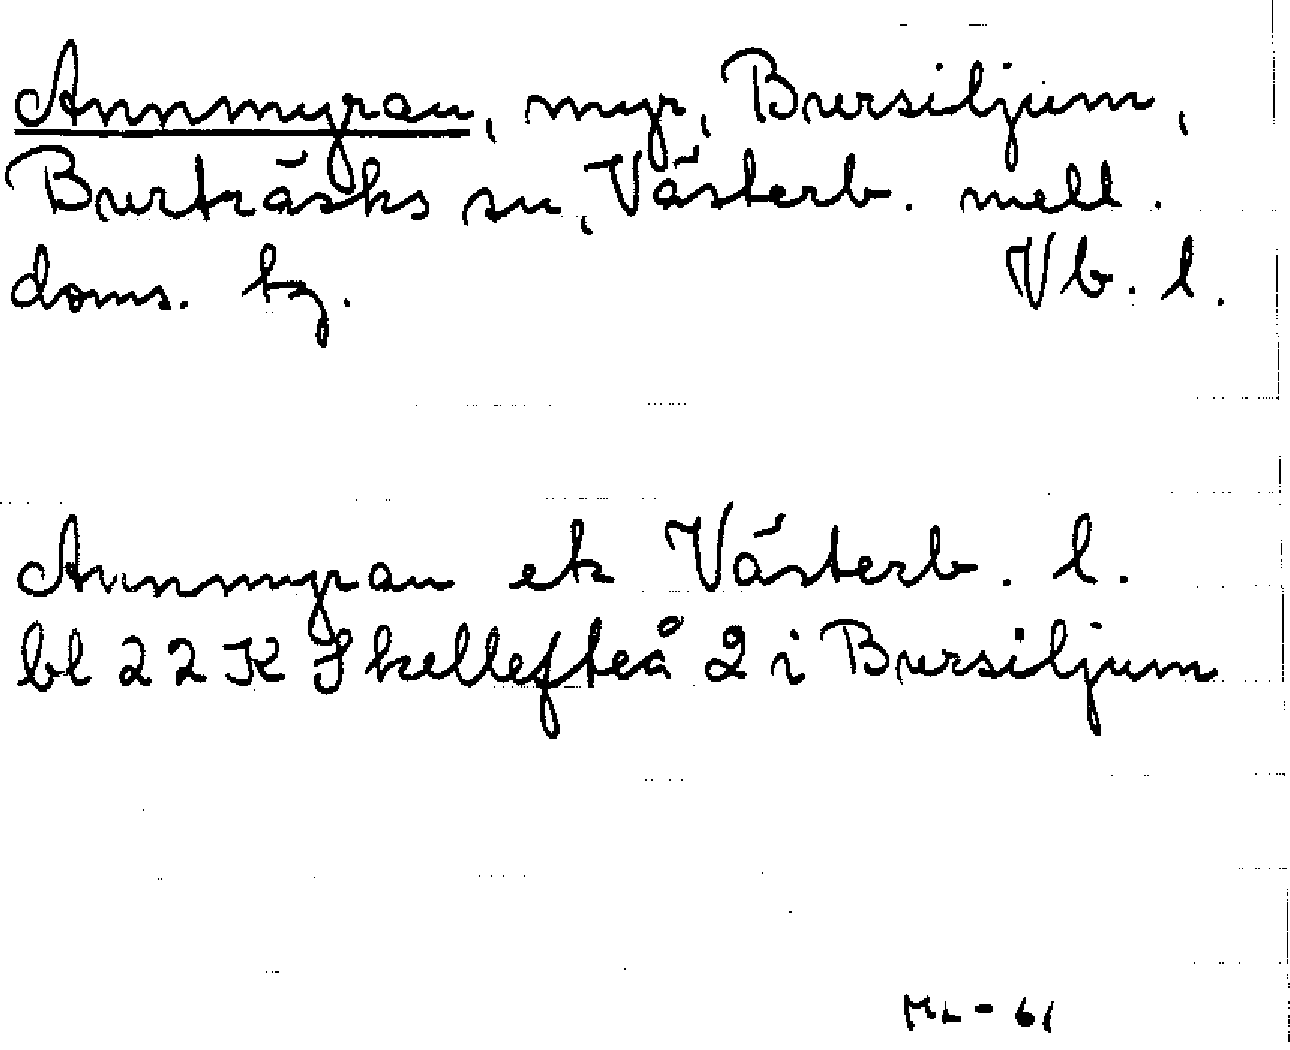 Annmyran, myr, Bursiljum,
Burträsks sn, Västerb. mell.
doms. bg. Vb. l.
Annmyran ek Västerb. l.
bl 22 K Skellefteå 2 i Bursiljum
ML - 61